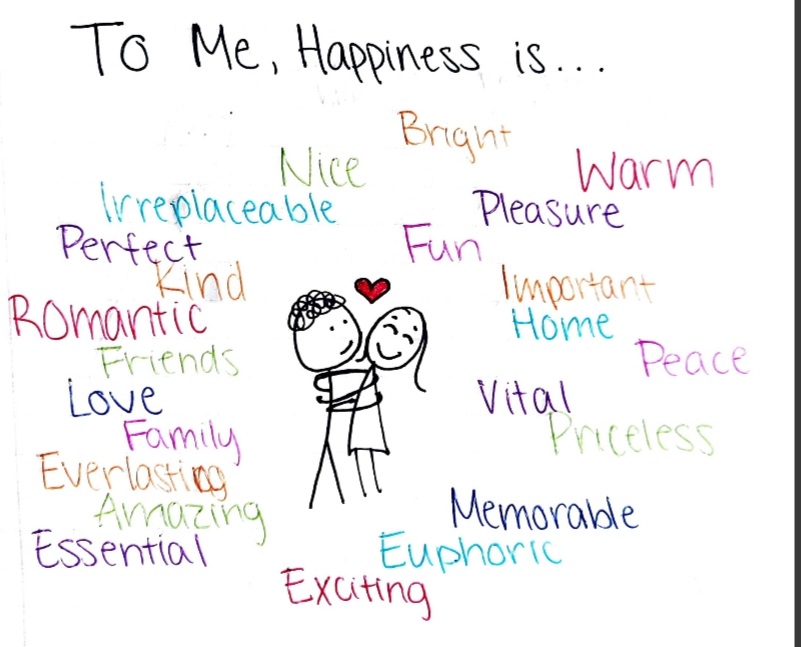 To Me, Happiness is...
Bright
Nice
Warm
Irreplaceable
Pleasure
Perfect
Fun
Kind
Important
Romantic
Home
Friends
Peace
Love
Vital
Family
Priceless
Everlasting
Amazing
Memorable
Essential
Euphoric
Exciting